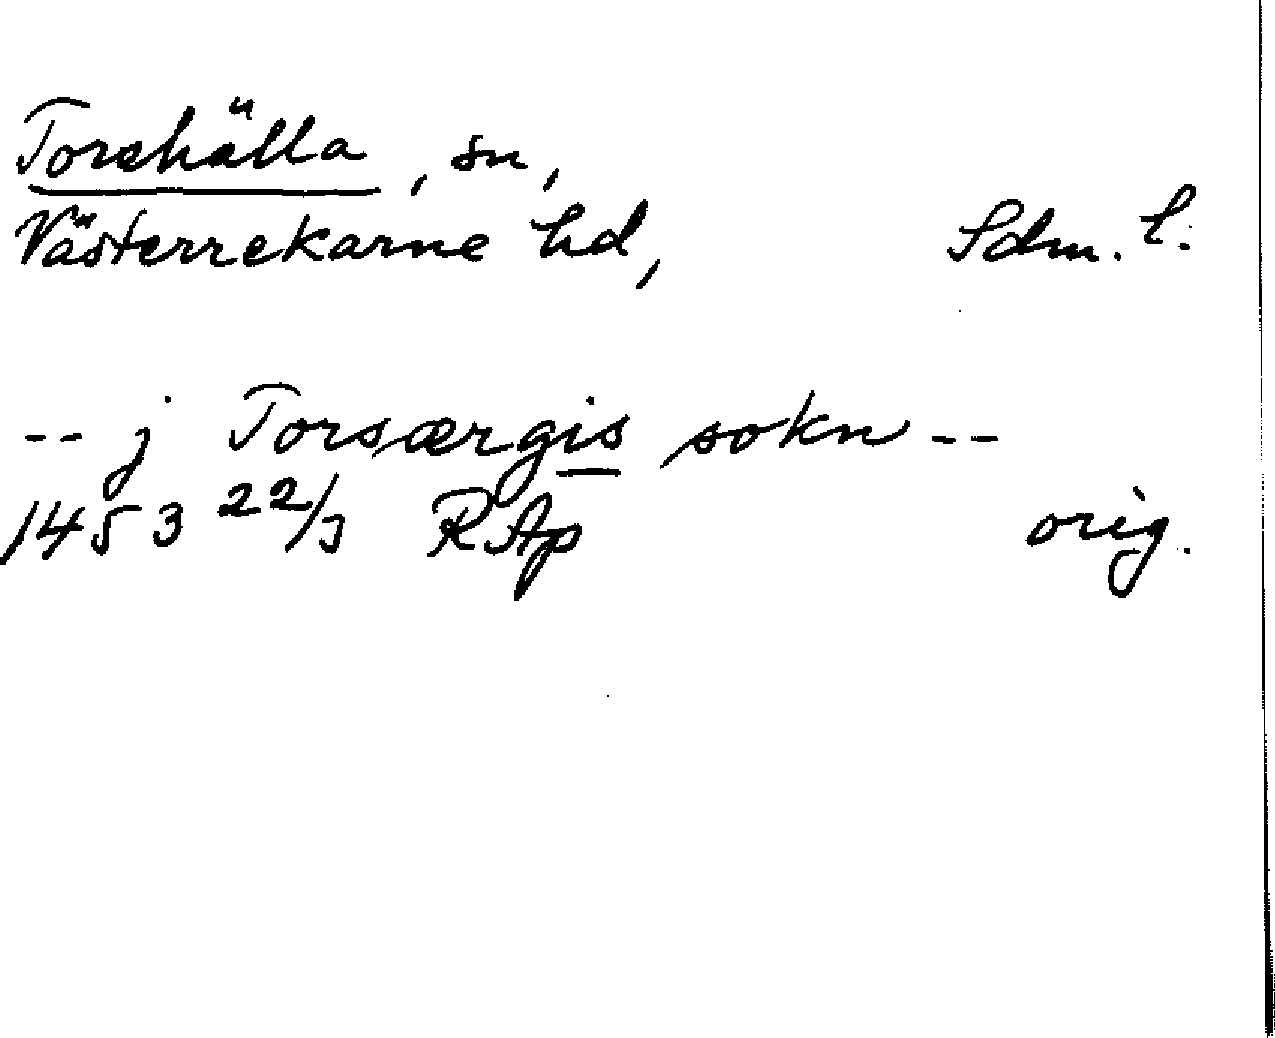 Torshälla, sn,
Västerrekarne hd, Sdm. l.
-- j Torsærgis sokn --
1453 22/3 RAp orig.